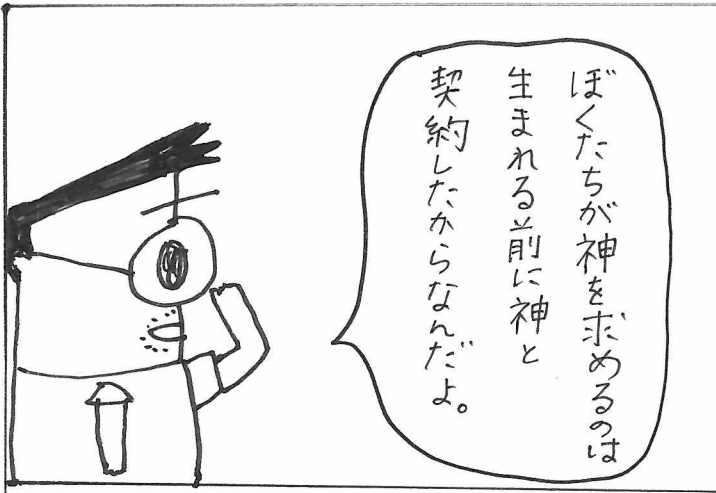 ぼくたちが神を求めるのは
生まれる前に神と
契約したからなんだよ。